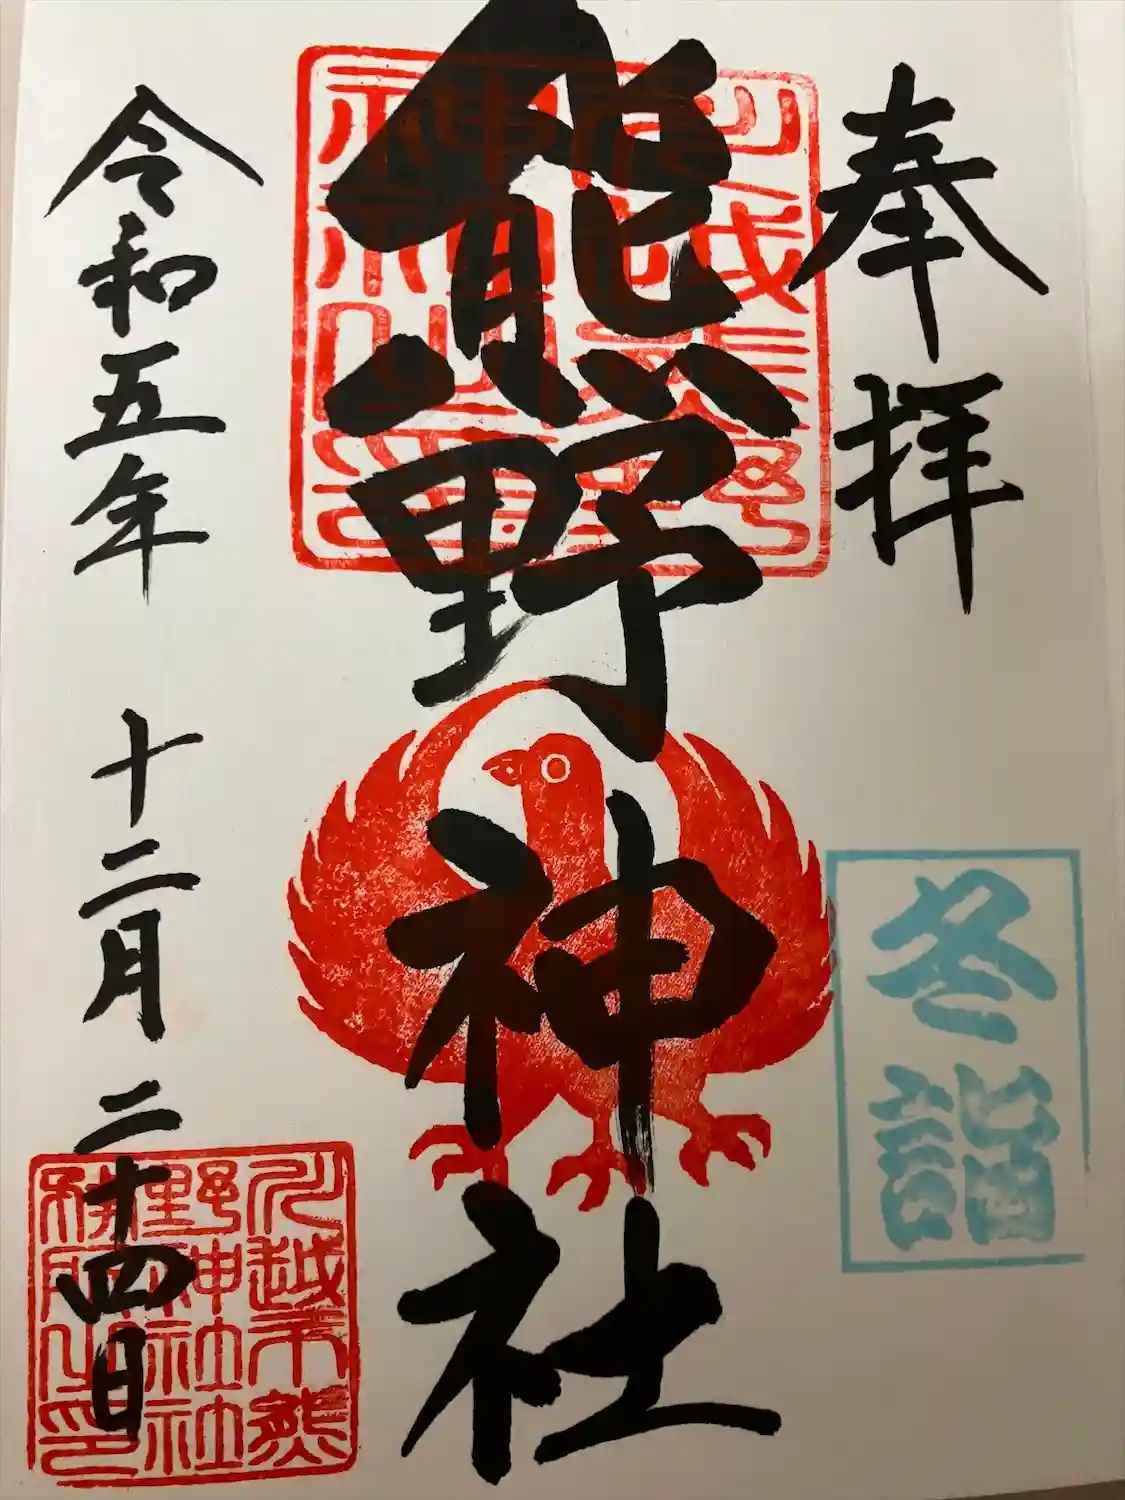 奉拝
冬詣
熊野神社
令和五年 十二月 二十四日
川越市熊
野神社社
務所之印